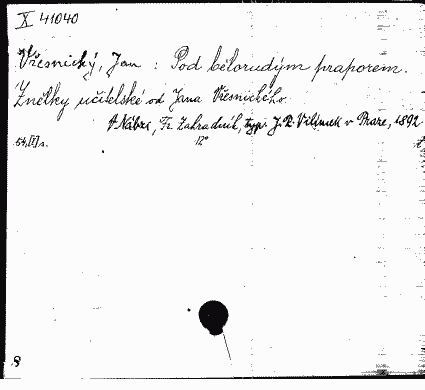 X 41040
Vřesnický, Jan : Pod bělorudým praporem.
Znělky učitelské od Jana Vřesnického.
V Nábze, Fr. Zahradník, typ. J. R. Vilímek v Praze, 1892
54, [I] s. 12°
8